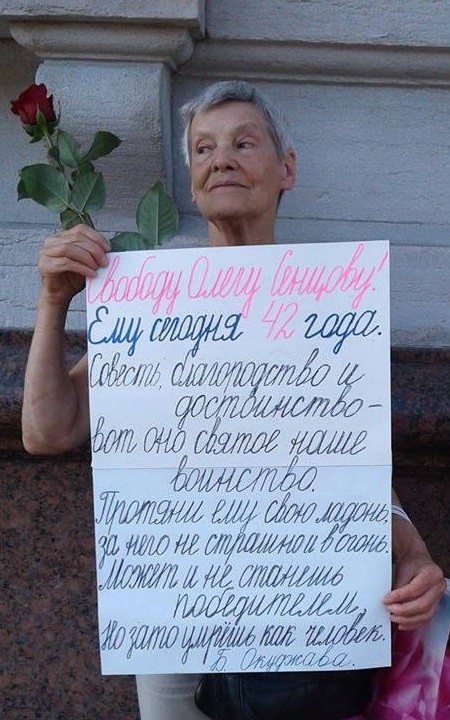 Свободу Олегу Сенцову!
Ему сегодня 42 года.
Совесть, благородство и
достоинство –
вот оно святое наше
воинство.
Протяни ему свою ладонь.
за него не страшно и в огонь.
Может и не станешь
победителем,
Но зато умрёшь как человек.
Б. Окуджава.